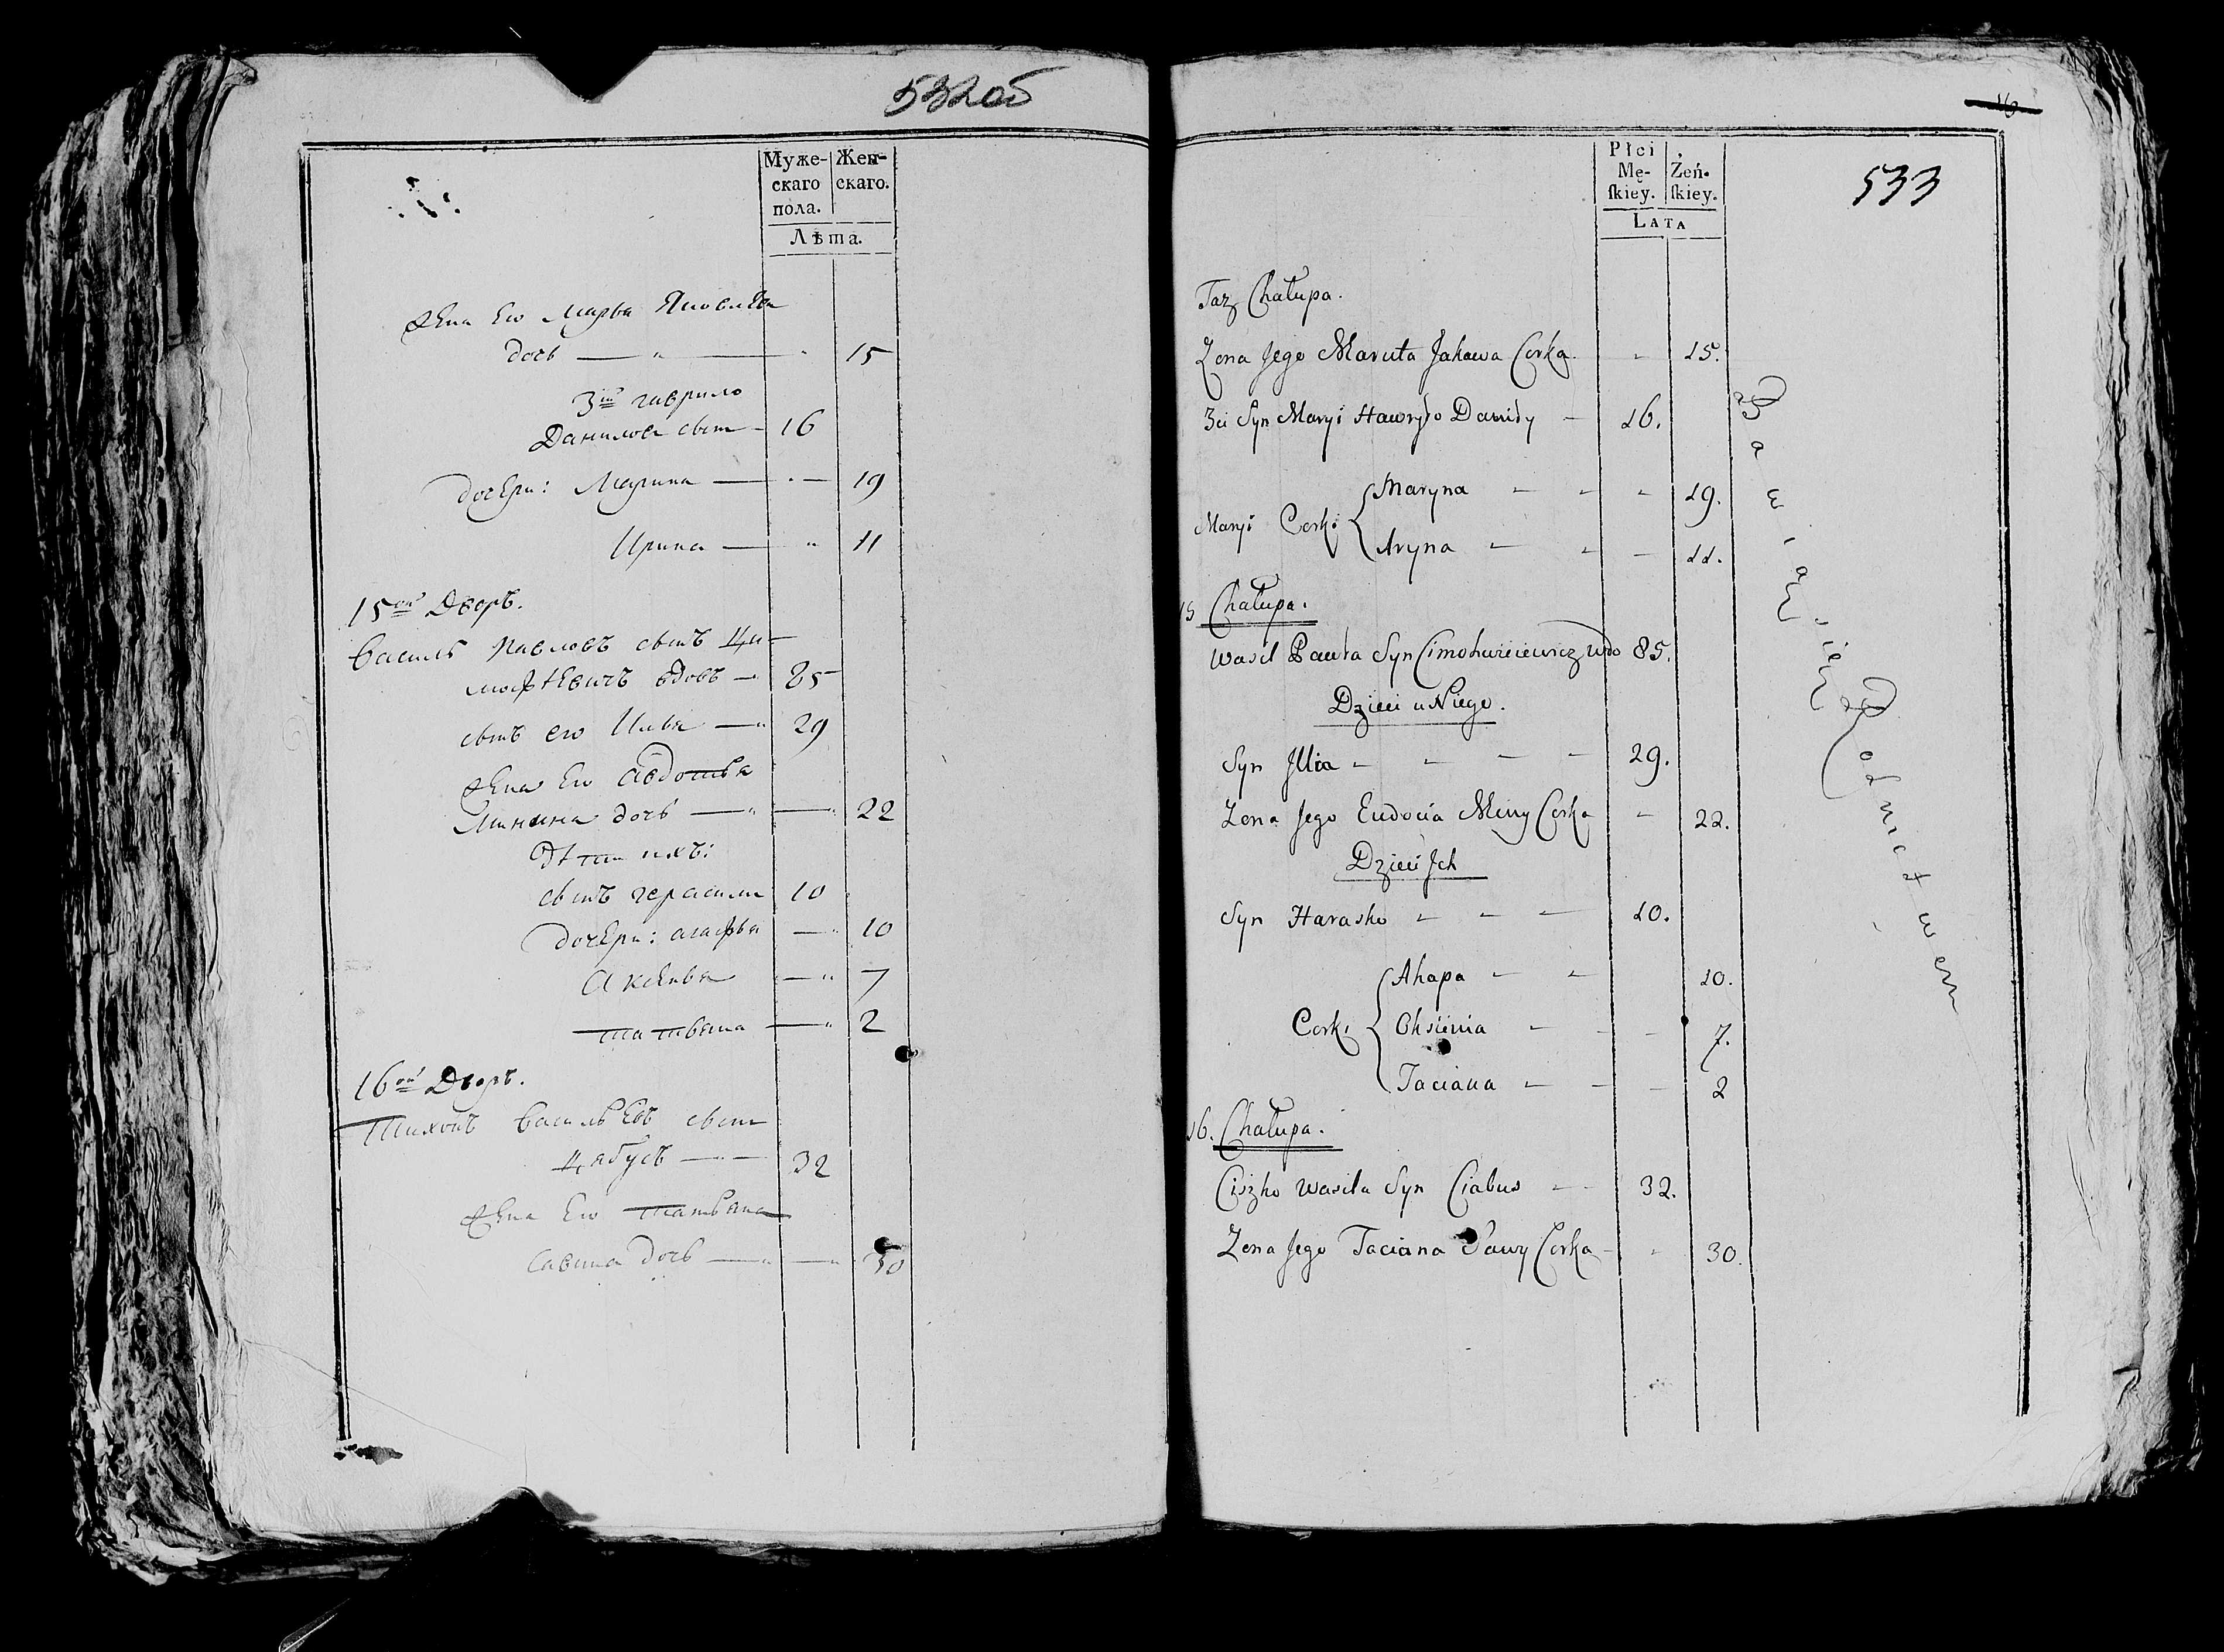 532об
Муже- Жен-
скаго скаго.
пола.
Лѣта.
жена Его Марья Яковлева
дочь — " — " 15
3й гаврило
Данилов сынъ — 16
дочери: Марина — " — 19
Ирина — " 11
15ой Дворъ.
Василь Павловъ сынъ Ци-
мофѣевичъ вдовъ — 85
сынъ его Илья — " 29
жена Его Авдотья
Минина дочь — " — " 22
Дѣти ихъ:
сынъ герасим 10
дочери: агафья — " 10
Аксинья — " 7
татьяна — " 2
16ой Дворъ.
Тихонъ Васильевъ сынъ
Цябусъ — " — 32
жена Его татьяна
Савина дочь — " — " 30
16
533
Płci Żeń-
Mę- ſkiey.
ſkiey.
LATA
Taz Chałupa.
Zona Jego Maruta Jakowa Corka - 15.
3ci Syn Maryi Hawryło Daniły - 16.
Maryi Corki
Maryna - - - 19.
Aryna - - - 11.
15 Chałupa.
Wasil Pawła Syn Cimochwieiewicz Wdo 85.
Dzieci u Niego.
Syn Jllia - - - - 29.
Zona Jego Eudocia Miny Corka - 22.
Dzieci Jch
Syn Harasko - - - 10.
Corki
Ahapa - - 10.
Oksienia - - - 7.
Taciana - - - 2
16. Chałupa.
Ciszko Wasila Syn Ciabus - - 32.
Zona Jego Taciana Sawy Corka - - 30.